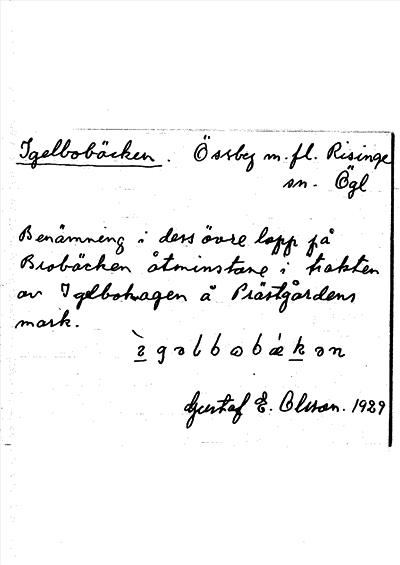 Igelbobäcken. Össby m. fl. Risinge
sn. Ögl
Benämning i dess övre lopp på
Brobäcken åtminstone i trakten
av Igelbohagen å Prästgårdens
mark.
ìgəlbobǽkən
Gustaf E. Olsson. 1929